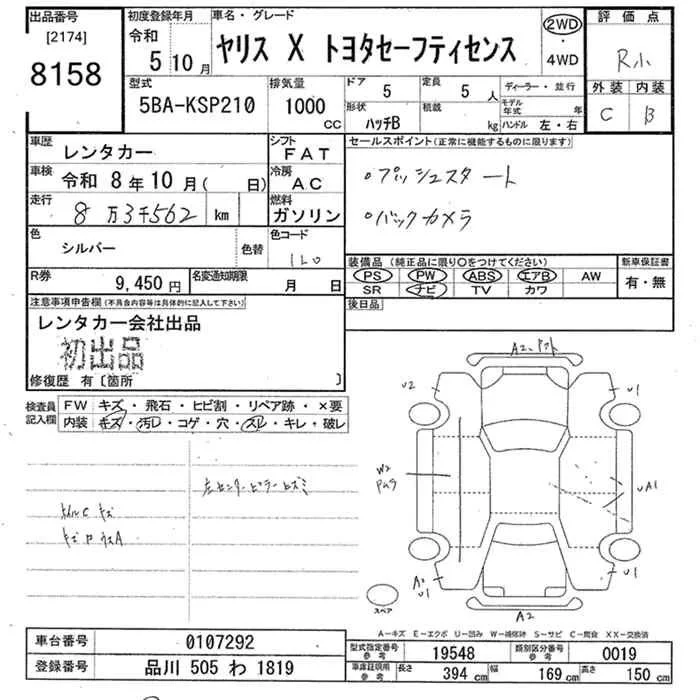 出品番号
[2174]
8158
初度登録年月
令和 5 10 月
車名・グレード
ヤリス X トヨタセーフティセンス
2WD
・
4WD
評価点
R小
外装 内装
C B
型式
5BA-KSP210
排気量
1000 CC
ドア
5
定員
5 人
形状
ハッチB
積載
kg
ディーラー・並行
モデル年式 年
ハンドル 左・右
車歴
レンタカー
シフト
FAT
車検
令和 8年 10月( 日)
冷房
AC
走行
8万3千562 km
燃料
ガソリン
色
シルバー
色替
色コード
1L0
R券
9,450 円
名変通知期限
月 日
セールスポイント(正常に機能するものに限ります)
。プッシュスタート
。バックカメラ
装備品(純正品に限り〇をつけてください)
PS PW ABS エアB AW
SR ナビ TV カワ
新車保証書
有・無
後日品
注意事項申告欄(不具合内容等は具体的に記入して下さい)
レンタカー会社出品
初出品
修復歴 有〔箇所 〕
検査員記入欄
FW キズ・飛石・ヒビ割・リペア跡・×要
内装 キズ・汚レ・コゲ・穴・スレ・キレ・破レ
左センターピラーヒズミ
ホイルC キズ
A2
U2
U1
W2
UA1
A2
U1
U1
A2
スペア
A-キズ E-エクボ U-凹み W-補修跡 S-サビ C-腐食 XX-交換済
車台番号
0107292
登録番号
品川 505 わ 1819
型式指定番号
参考
19548
類別区分番号
参考
0019
車庫証明用
参考
長さ 394 cm 幅 169 cm 高さ 150 cm